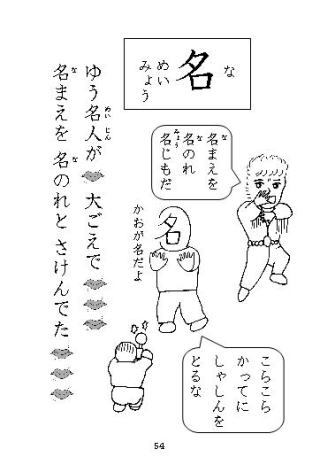 な
名
めい
みょう
名まえを
名のれ
名じもだ
な
な
みょう
名
かおが名だよ
こらこら
かってに
しゃしんを
とるな
ゆう名人が 大ごえで
めい じん
名まえを 名のれと さけんでた
な
な
54